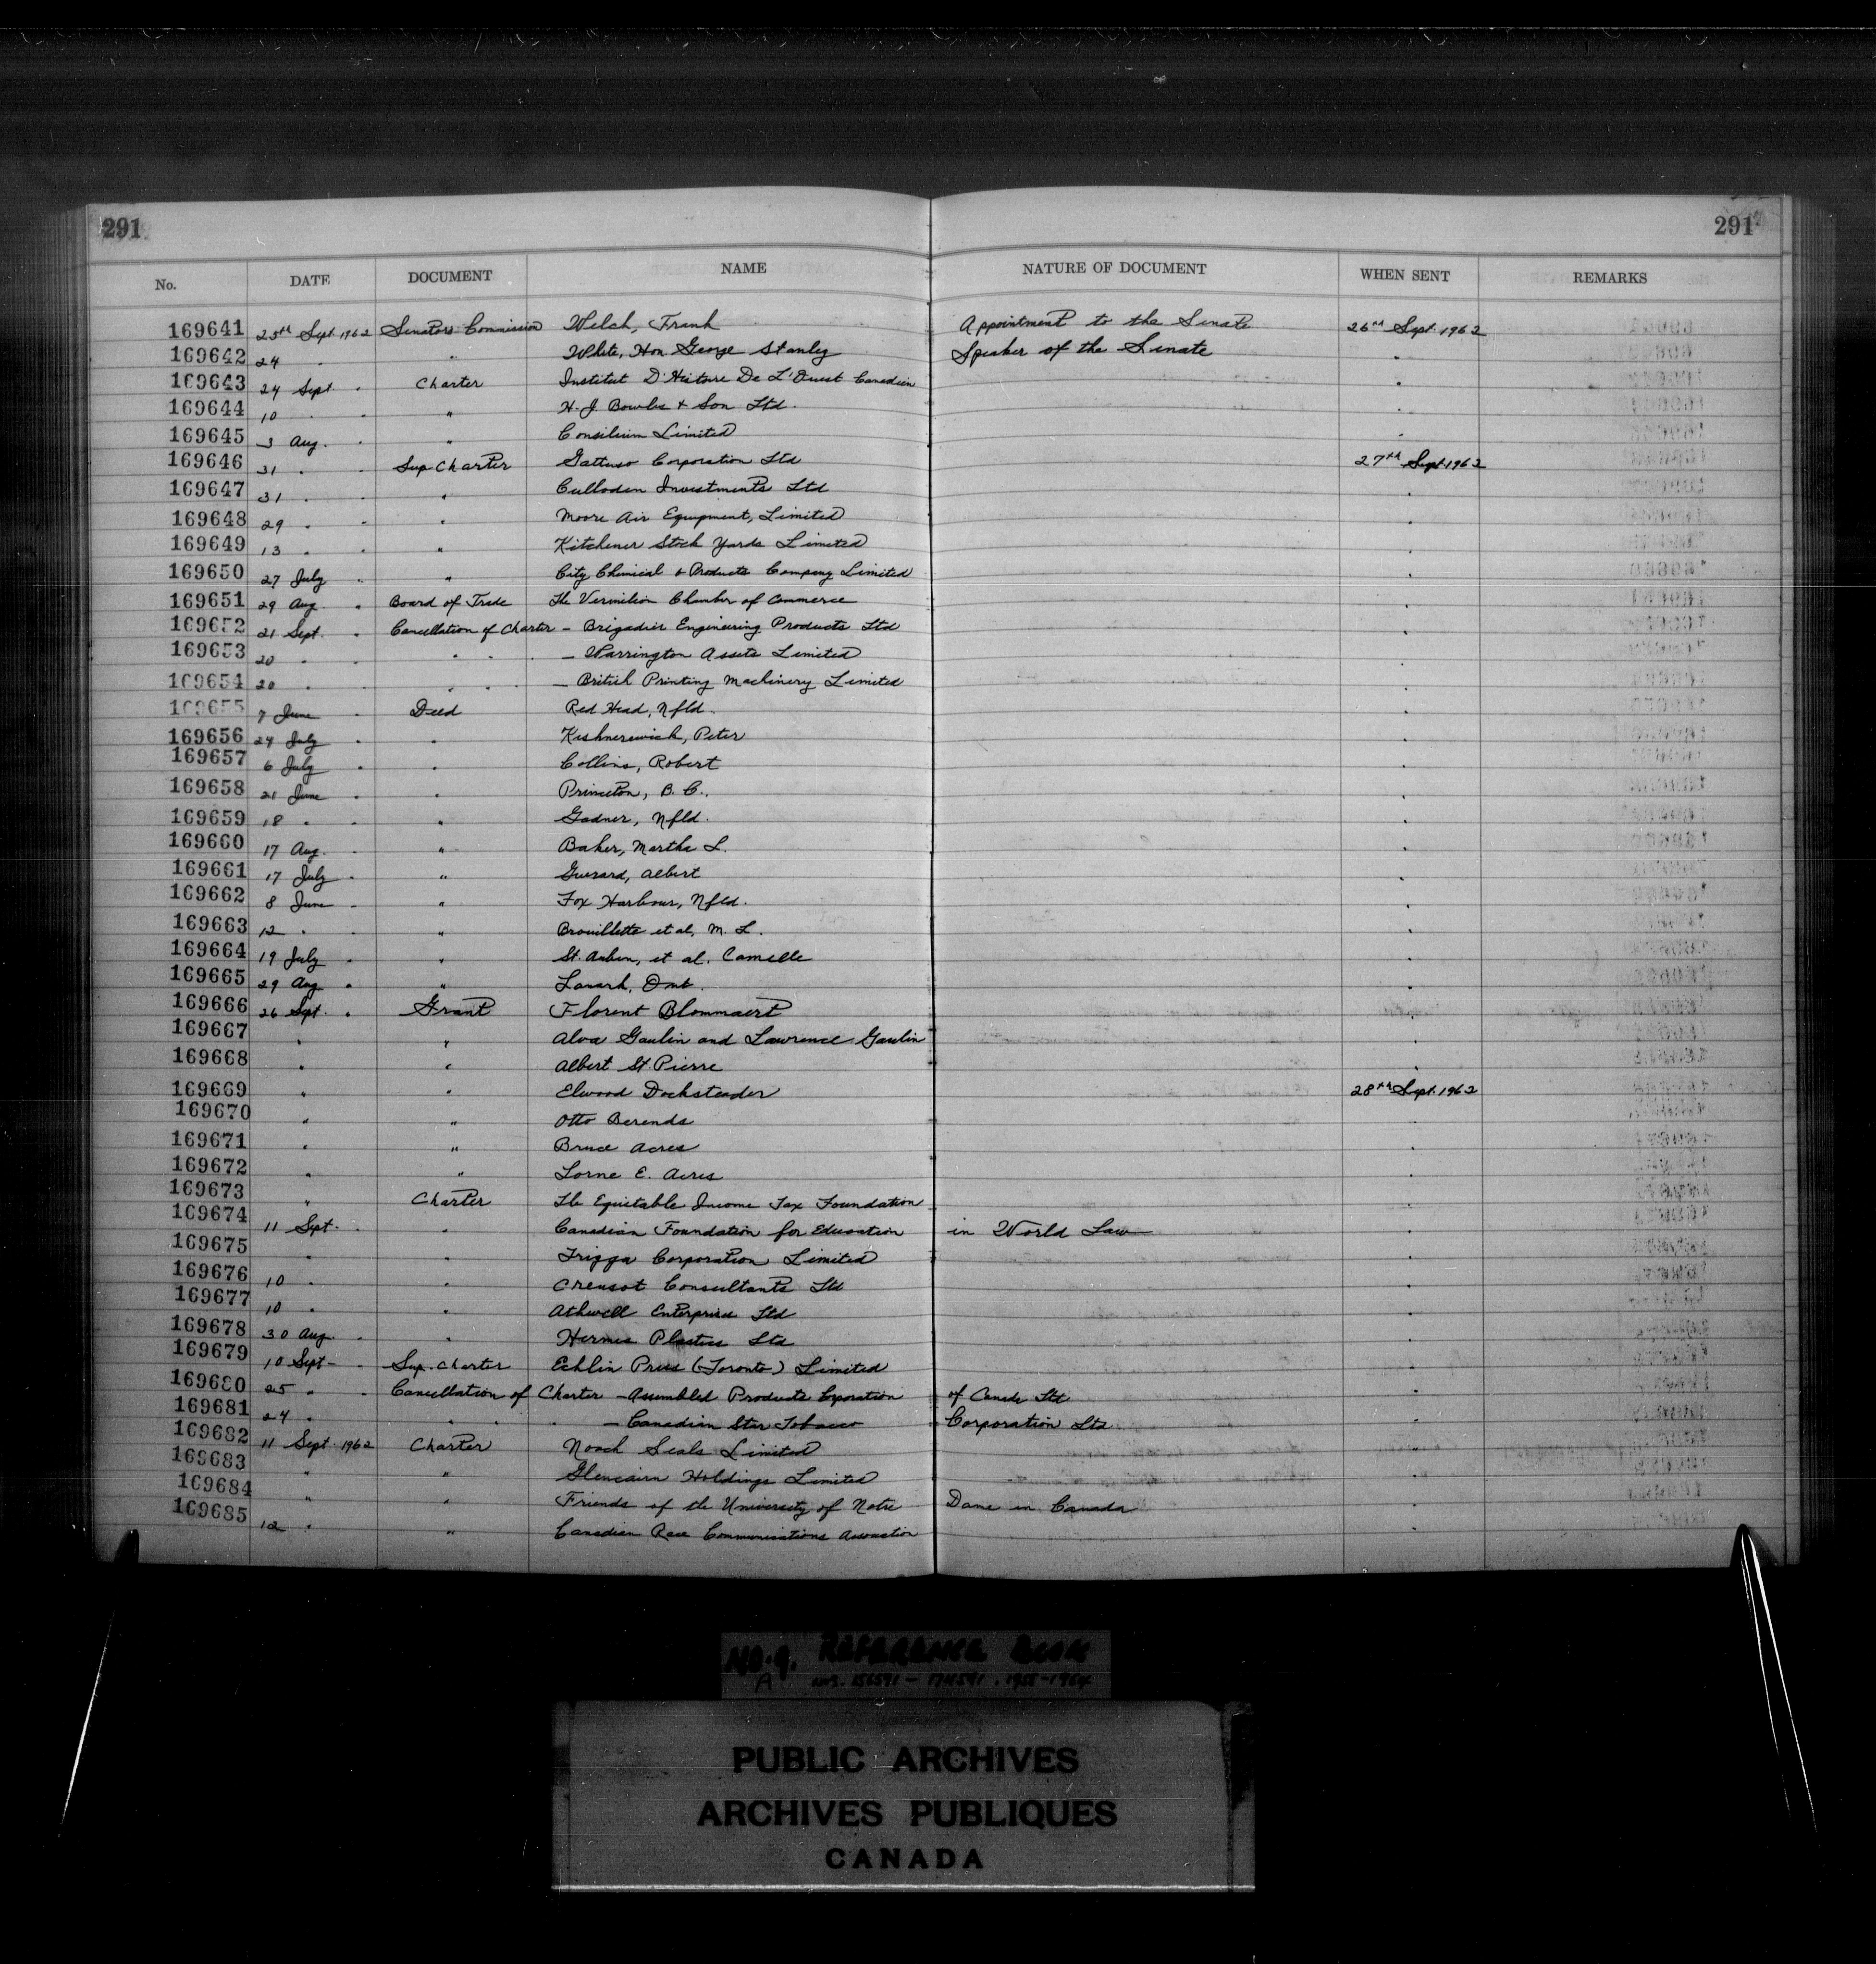 291 291
No. DATE DOCUMENT NAME NATURE OF DOCUMENT WHEN SENT REMARKS
169641 25th Sept 1962 Senators Commission Welch, Frank Appointment to the Senate 26th Sept. 1962
169642 24 " " White, Hon. George Stanley Speaker of the Senate "
169643 24 Sept. " Charter Institut D'Histoire De L'Ouest Canadien "
169644 10 " " " H. J. Bowles & Son Ltd. "
169645 3 Aug. " " Consilium Limited "
169646 31 " " Sup. Charter Gattuso Corporation Ltd 27th Sept 1962
169647 31 " " " Culloden Investments Ltd "
169648 29 " " " Moore Air Equipment, Limited "
169649 13 " " " Kitchener Stock Yards Limited "
169650 27 July " " City Chemical & Products Company Limited "
169651 29 Aug. " Board of Trade The Vermilion Chamber of Commerce "
169652 21 Sept. " Cancellation of Charter - Brigadier Engineering Products Ltd "
169653 20 " " " " " - Warrington Assets Limited "
169654 20 " " " " - British Printing Machinery Limited "
169655 7 June " Deed Red Head, Nfld. "
169656 24 July " " Peter "
169657 6 July " " Collins, Robert "
169658 21 June " " Princeton, B. C. "
169659 18 " " " Nfld. "
169660 17 Aug. " " Baker, Martha L. "
169661 17 July " " Guerard, Albert "
169662 8 June " " Fox Harbour, Nfld. "
169663 12 " " " Brouillette et al, M. L. "
169664 19 July " " St. Aubin, et al. Camille "
169665 29 Aug. " " Lanark, Ont. "
169666 26 Sept. " Grant Florent Blommaert "
169667 " " Alva Gaulin and Lawrence Gaulin "
169668 " " Albert St. Pierre "
169669 " " Elwood Docksteader 28th Sept. 1962
169670 " " Otto Berends "
169671 " " Bruce Acres "
169672 " " Lorne E. Acres "
169673 " Charter The Equitable Income Tax Foundation "
169674 11 Sept. " " Canadian Foundation for Education in World Law "
169675 " " Trigga Corporation Limited "
169676 10 " " Creusot Consultants Ltd "
169677 10 " " Athwell Enterprises Ltd "
169678 30 Aug. " " Hermes Plastics Ltd "
169679 10 Sept - " Sup. Charter Echlin Press (Toronto) Limited "
169680 25 " " Cancellation of Charter - Assembled Products Corporation of Canada Ltd "
169681 24 " " " " - Canadian Star Tobacco Corporation Ltd. "
169682 11 Sept. 1962 Charter Noach Seals Limited "
169683 " " Glencairn Holdings Limited "
169684 " " Friends of the University of Notre Dame in Canada "
169685 12 " " Canadian Race Communications Association "
NO. 9. REFERENCE BOOK
A NOS. 156591 - 174591. 1958-1964
PUBLIC ARCHIVES
ARCHIVES PUBLIQUES
CANADA